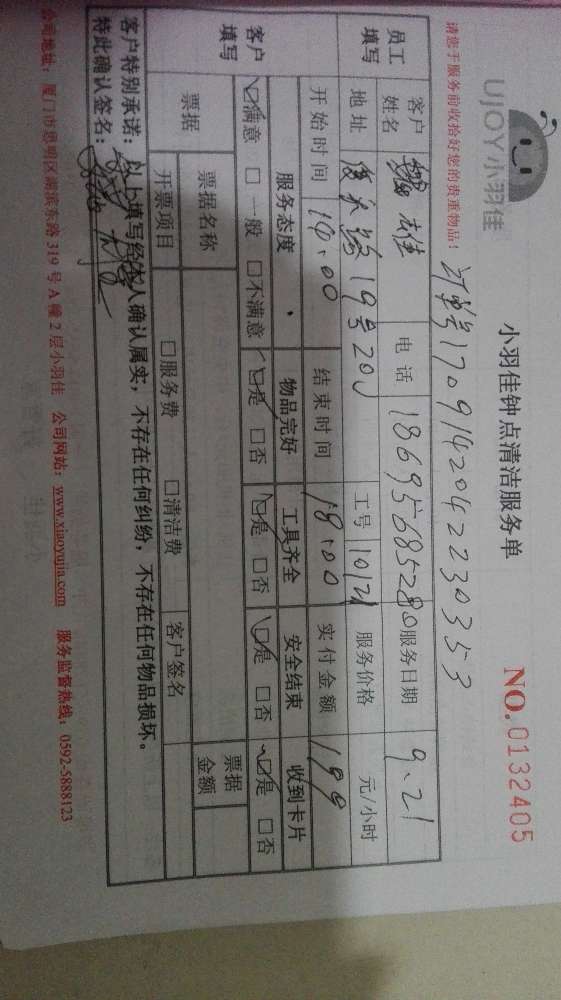 UJOY小羽佳
小羽佳钟点清洁服务单
NO.0132405
请您于服务前收拾好您的贵重物品!
订单号1709142042230353
员工填写 客户姓名 电话 18695685280 服务日期 9.21
地址 19号201 工号 10121 服务价格 元/小时
开始时间 14:00 结束时间 18:00 实付金额 199
客户填写 服务态度 物品完好 工具齐全 安全结束 收到卡片
☑满意 □一般 □不满意 ☑是 □否 ☑是 □否 ☑是 □否 ☑是 □否
票据 票据名称 票据金额
开票项目 □服务费 □清洁费 客户签名
客户特别承诺:以上填写经本人确认属实,不存在任何纠纷,不存在任何物品损坏。
特此确认签名:
公司地址:厦门市思明区湖滨东路319号A幢2层小羽佳 公司网站:www.xiaoyujia.com 服务监督热线:0592-5888123